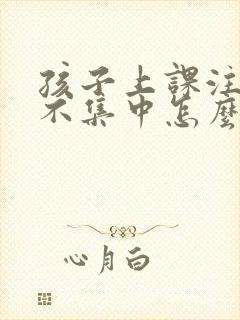 孩子上課注
不集中怎麼
心月白